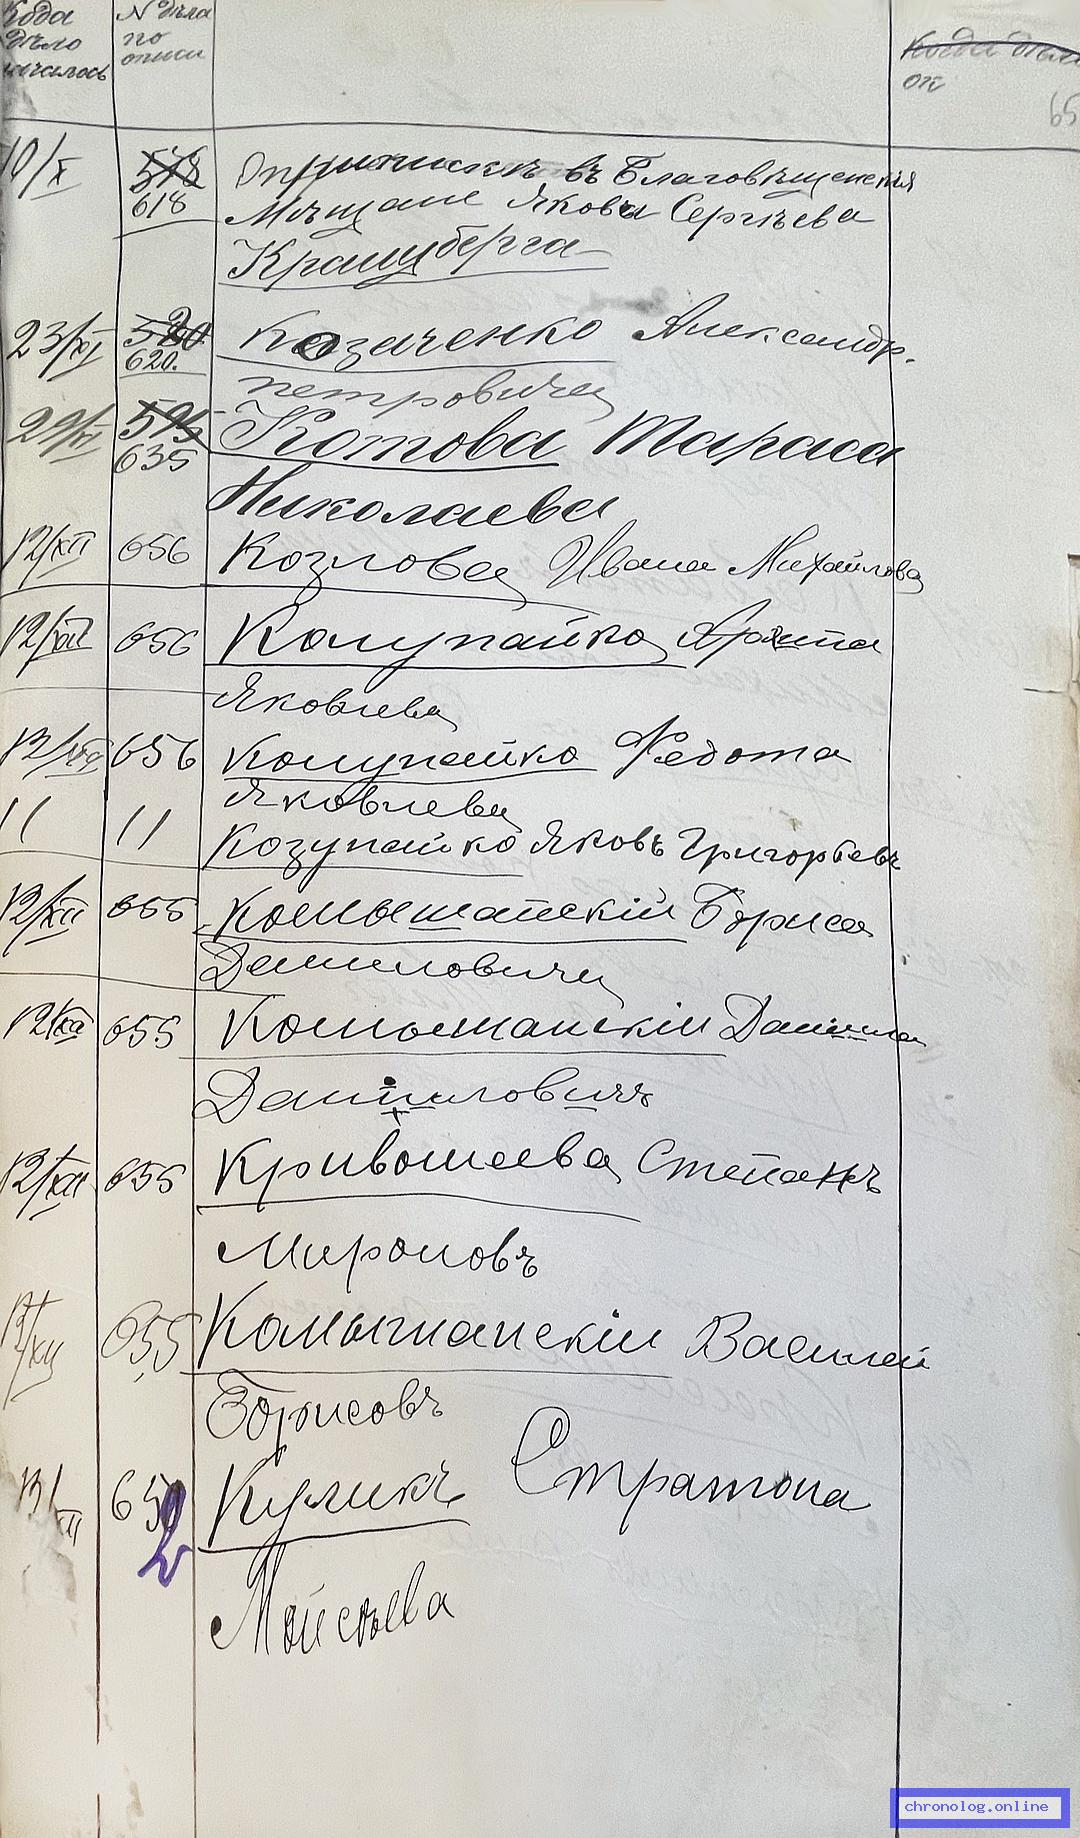 Когда дѣло началось
№ дѣла по описи
Когда дѣло ок
65
10/X 578 618 Опричискѣ въ Благовѣщенскія
Мѣщане Якова Сергѣева
Кранцберга
23/XI 620. Козаченко Александр.
Петровича
29/XI 595 635 Котова Тараса
Николаева
12/XII 656 Козлова Ивана Михайлова
12/XII 656 Колупайко Архипа
Яковлева
12/XII 656 Колупайко Федота
Яковлева
11 11 Козупайко Яковъ Григорьевъ
12/XII 655 Комышанскій Бориса
Даниловича
12/XII 655 Комышанскій Данила
Даниловичъ
12/XII 655 Кривошеева Степанъ
Мироновъ
12/XII 655 Камышанскій Василей
Борисовъ
13/XII 652 Куликъ Стратона
Мойсѣева
chronolog.online